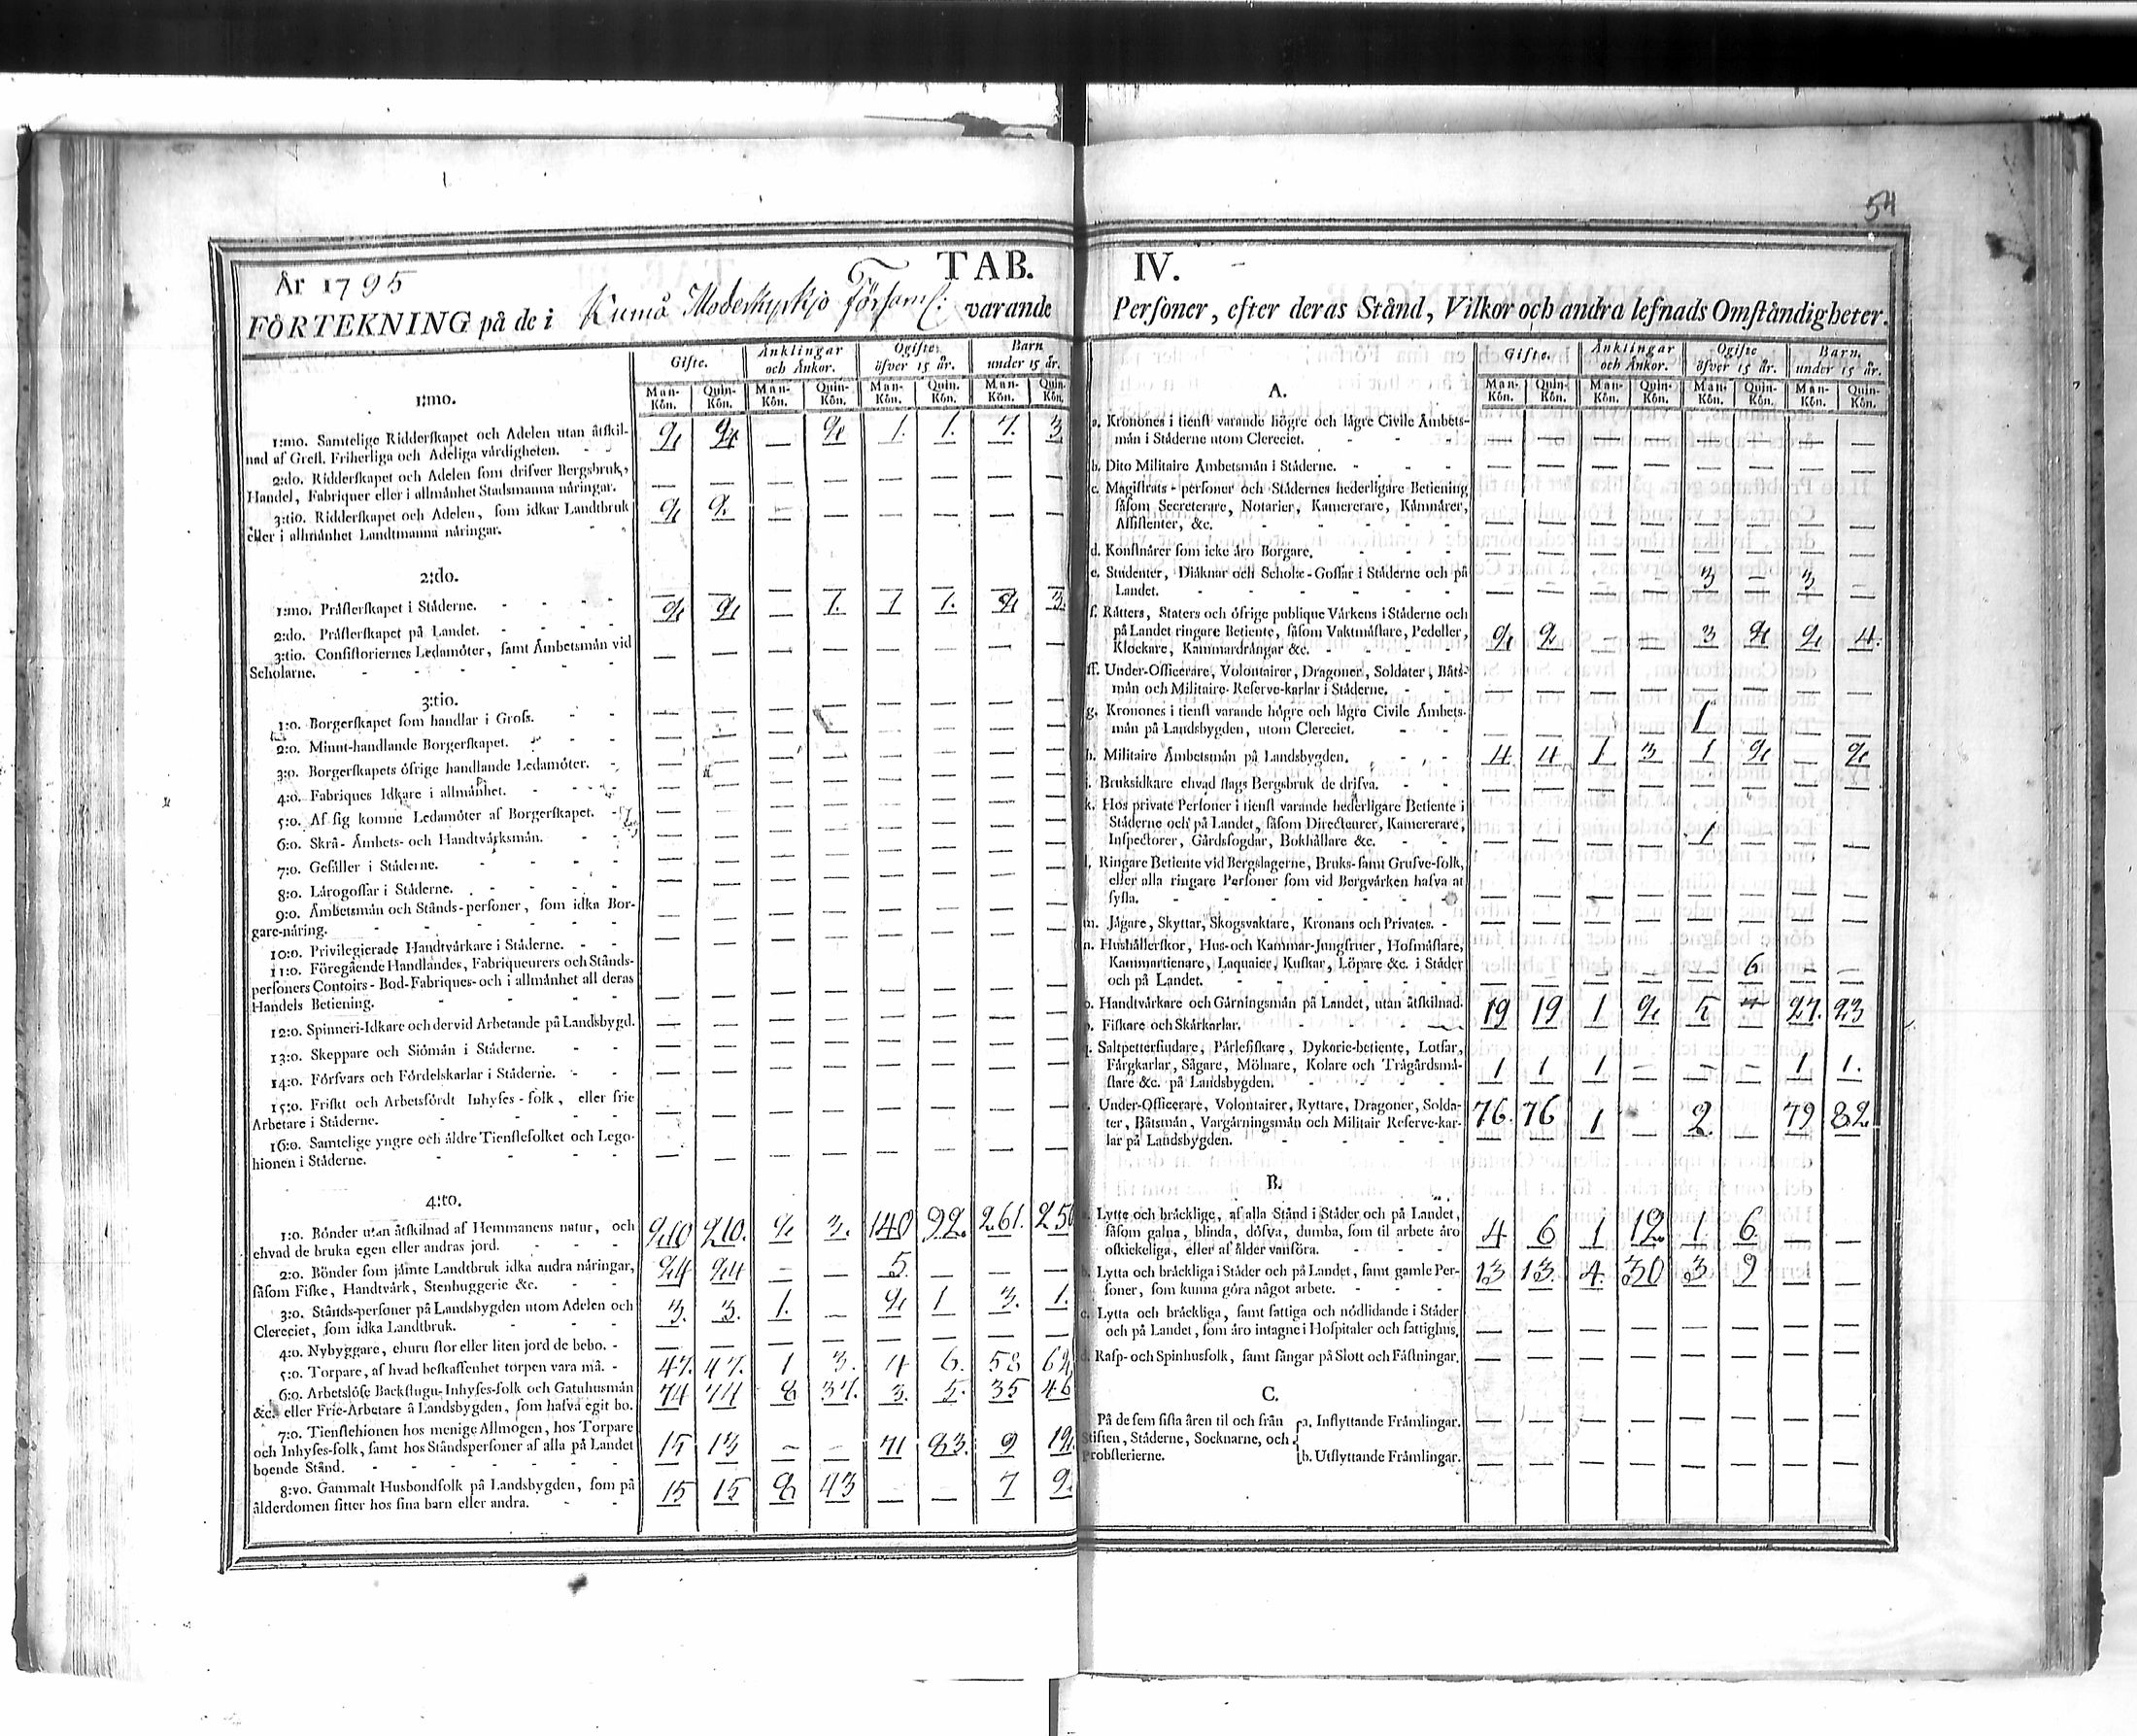 54
År 1795
TAB.
FÖRTEKNING på de i Kumo Moderkyrkjo Församl: varande
Gifte. Änklingar och Änkor. Ogifte öfver 15 år. Barn under 15 år.
Man-Kön. Quin-Kön. Man-Kön. Quin-Kön. Man-Kön. Quin-Kön. Man-Kön. Quin-Kön.
1:mo.
1:mo. Samtelige Ridderskapet och Adelen utan åtskil-
nad af Grefl. Friherliga och Adeliga värdigheten. 2 2 — 2 1. 1. 7. 3
2:do. Ridderskapet och Adelen som drifver Bergsbruk,
Handel, Fabriquer eller i allmänhet Stadsmanna näringar. — — — — — — — —
3:tio. Ridderskapet och Adelen, som idkar Landtbruk
eller i allmänhet Landtmanna näringar. 2 2. — — — — — —
2:do.
1:mo. Prästerskapet i Städerne. — — — — — — — —
2:do. Prästerskapet på Landet. 2 2 — 1. 1 1. 2 3.
3:tio. Consistoriernes Ledamöter, samt Ämbetsmän vid
Scholarne. — — — — — — — —
3:tio.
1:o. Borgerskapet som handlar i Gross. — — — — — — — —
2:o. Minut-handlande Borgerskapet. — — — — — — — —
3:o. Borgerskapets öfrige handlande Ledamöter. — — — — — — — —
4:o. Fabriques Idkare i allmänhet. — — — — — — — —
5:o. Af sig komne Ledamöter af Borgerskapet. — — — — — — — —
6:o. Skrå- Ämbets- och Handtvärksmän. — — — — — — — —
7:o. Gesäller i Städerne. — — — — — — — —
8:o. Lärogossar i Städerne. — — — — — — — —
9:o. Ämbetsmän och Stånds-personer, som idka Bor-
gare-näring. — — — — — — — —
10:o. Privilegierade Handtvärkare i Städerne. — — — — — — — —
11:o. Föregående Handlandes, Fabriqueurers och Stånds-
personers Contoirs- Bod-Fabriques- och i allmänhet all deras
Handels Betiening. — — — — — — — —
12:o. Spinneri-Idkare och dervid Arbetande på Landsbygd. — — — — — — — —
13:o. Skeppare och Siömän i Städerne. — — — — — — — —
14:o. Försvars och Fördelskarlar i Städerne. — — — — — — — —
15:o. Friskt och Arbetsfördt Inhyses-folk, eller frie
Arbetare i Städerne. — — — — — — — —
16:o. Samtelige yngre och äldre Tienstefolket och Lego-
hionen i Städerne. — — — — — — — —
4:to.
1:o. Bönder utan åtskilnad af Hemmanens natur, och
ehvad de bruka egen eller andras jord. 210 210. 2 3. 140 92. 261. 250
2:o. Bönder som jämte Landtbruk idka andra näringar,
såsom Fiske, Handtvärk, Stenhuggerie &c. 24 24 — — 5. — — —
3:o. Stånds-personer på Landsbygden utom Adelen och
Clereciet, som idka Landtbruk. 3. 3. 1. — 2 1 3. 1.
4:o. Nybyggare, ehuru stor eller liten jord de bebo. — — — — — — — —
5:o. Torpare, af hvad beskaffenhet torpen vara må. 47. 47. 1 3. 4 6. 58 62
6:o. Arbetslöse Backstugu- Inhyses-folk och Gatuhusmän
&c. eller Frie-Arbetare å Landsbygden, som hafva eget bo. 74 74 8 37. 3. 5. 35 46
7:o. Tienstehionen hos menige Allmogen, hos Torpare
och Inhyses-folk, samt hos Ståndspersoner af alla på Landet
boende Stånd. 15 13 — — 71 83. 9 12.
8:vo. Gammalt Husbondfolk på Landsbygden, som på
ålderdomen sitter hos sina barn eller andra. 15 15 8 43 — — 7 9.
IV.
Personer, efter deras Stånd, Vilkor och andra lefnads Omständigheter.
Gifte. Änklingar och Änkor. Ogifte öfver 15 år. Barn. under 15 år.
Man-Kön. Quin-Kön. Man-Kön. Quin-Kön. Man-Kön. Quin-Kön. Man-Kön. Quin-Kön.
A.
a. Kronones i tienst varande högre och lägre Civile Ämbets-
män i Städerne utom Clereciet. — — — — — — — —
b. Dito Militaire Ämbetsmän i Städerne. — — — — — — — —
c. Magistrats-personer och Städernes hederligare Betiening
såsom Secreterare, Notarier, Kamererare, Kämnärer,
Assistenter, &c. — — — — — — — —
d. Konstnärer som icke äro Borgare. — — — — — — — —
e. Studenter, Diäknar och Schole-Gossar i Städerne och på
Landet. — — — — 3 — 3 —
f. Rätters, Staters och öfrige publique Värkens i Städerne och
på Landet ringare Betiente, såsom Vaktmästare, Pedeller,
Klockare, Kammardrängar &c. 2 2 — — 3 2 2 4.
ff. Under-Officerare, Volontairer, Dragoner, Soldater, Båts-
män och Militaire- Reserve-karlar i Städerne. — — — — — — — —
g. Kronones i tienst varande högre och lägre Civile Ämbets-
män på Landsbygden, utom Clereciet. — — — — 1 — — —
h. Militaire Ämbetsmän på Landsbygden. 4 4 1 3 1 2 — 2
i. Bruksidkare ehvad slags Bergsbruk de drifva. — — — — — — — —
k. Hos private Personer i tienst varande hederligare Betiente i
Städerne och på Landet, såsom Directeurer, Kamererare,
Inspectorer, Gårdsfogdar, Bokhållare &c. — — — — 1 — — —
l. Ringare Betiente vid Bergslagerne, Bruks- samt Grufve-folk,
eller alla ringare Personer som vid Bergvärken hafva at
sysla. — — — — — — — —
m. Jägare, Skyttar, Skogsvaktare, Kronans och Privates. — — — — — — — —
n. Hushållerskor, Hus- och Kammar-Jungfruer, Hofmästare,
Kammartienare, Laquaier, Kuskar, Löpare &c. i Städer
och på Landet. — — — — — 6 — —
o. Handtvärkare och Gärningsmän på Landet, utan åtskilnad. 19 19 1 2 5 — 27. 23
p. Fiskare och Skärkarlar.
q. Saltpettersiudare, Pärlefiskare, Dykerie-betiente, Lotsar,
Färgkarlar, Sågare, Mölnare, Kolare och Trägårdsmä-
stare &c. på Landsbygden. 1 1 1 — — — 1 1.
r. Under-Officerare, Volontairer, Ryttare, Dragoner, Solda-
ter, Båtsmän, Vargärningsmän och Militair Reserve-kar-
lar på Landsbygden. 76. 76 1 — 2. — 79 82
B.
a. Lytte och bräcklige, af alla Stånd i Städer och på Landet,
såsom galna, blinda, döfva, dumba, som til arbete äro
oskickeliga, eller af ålder vanföra. 4 6 1 12. 1 6. — —
b. Lytta och bräckliga i Städer och på Landet, samt gamle Per-
soner, som kunna göra något arbete. 13 13. 4. 30 3 9 — —
c. Lytta och bräckliga, samt fattiga och nödlidande i Städer
och på Landet, som äro intagne i Hospitaler och fattighus. — — — — — — — —
d. Rasp- och Spinhusfolk, samt fångar på Slott och Fästningar. — — — — — — — —
C.
På de fem sista åren til och från
Stiften, Städerne, Socknarne, och
Probsterierne.
a. Inflyttande Främlingar. — — — — — — — —
b. Utflyttande Främlingar. — — — — — — — —